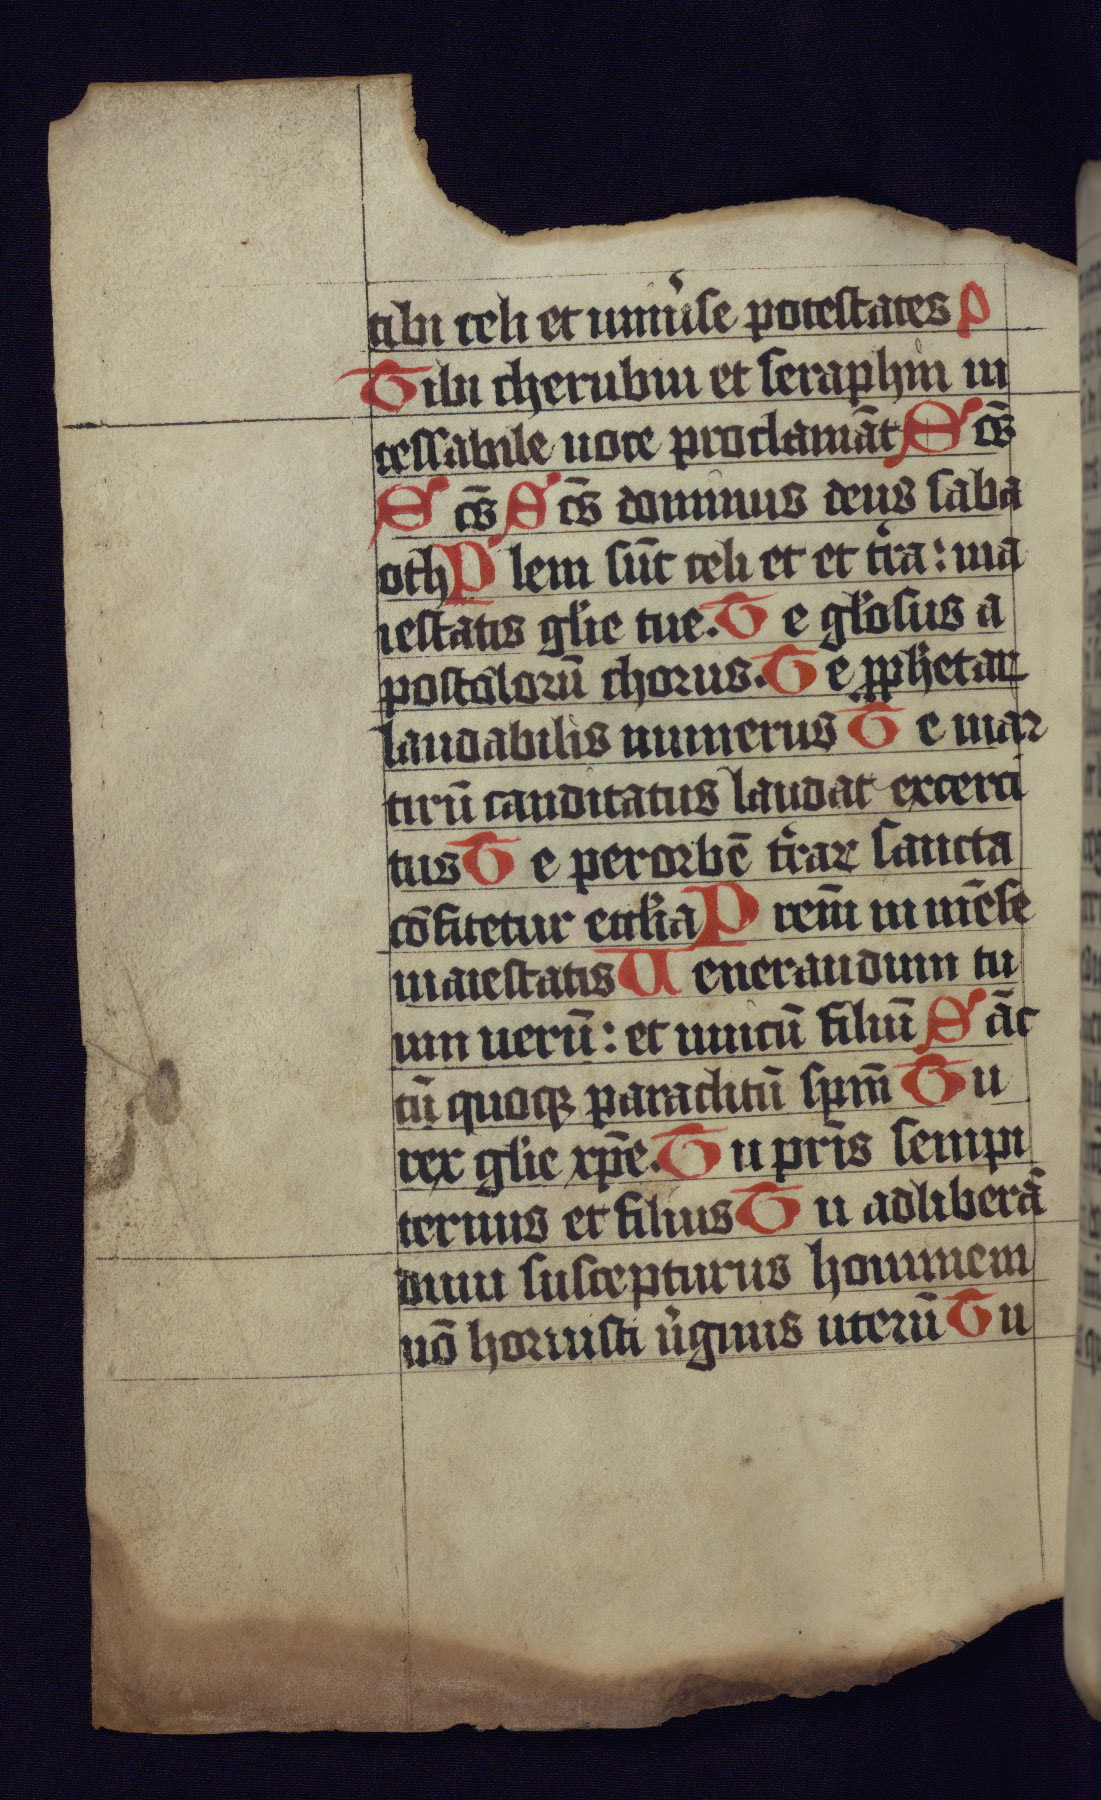 tibi celi et uniu̾se potestates P
Tibi cherubin et seraphin in
cessabile uoce proclamāt S cs̄
S cs̄ S cs̄ dominus deus saba
oth P lem sūt celi et et t̾ra : ma
iestatis gl̄ie tue. T e gl̄osus a
postolorū chorus. T e ꝓph̄etar
laudabilis numerus T e mar
tirū canditatus laudat excerci
tus T e perorbē t̾rar sancta
cōfitetur eccl̄ia P rem̄ inmēse
maiestatis U enerandum tu
um uerū : et unicū filiū S āc
tū quoqꝫ paraclitū sp̄m T u
rex gl̄ie xp̄e. T u pr̄is sempi
ternus et filius T u adliberā
dum suscepturus hominem
nō horruisti u̾ginis uterū T u